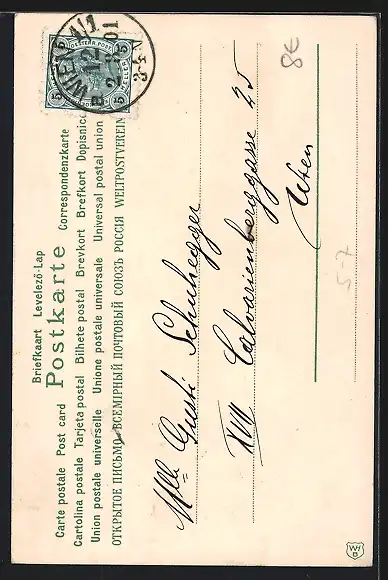 Briefkaart Levelező-Lap
Carte postale Post card Postkarte Correspondenzkarte
Cartolina postale Tarjeta postal Bilhete postal Brevkort Brefkort Dopisnica
Union postale universelle Unione postale universale Universal postal union
ОТКРЫТОЕ ПИСЬМО. ВСЕМІРНЫЙ ПОЧТОВЫЙ СОЮЗЪ РОССІЯ WELTPOSTVEREIN
WIEN
5 5
5 HELLER 5
Mlle Gusti Schuhegger
XVII Calvarienberggasse 25
Wien
8€
5-7